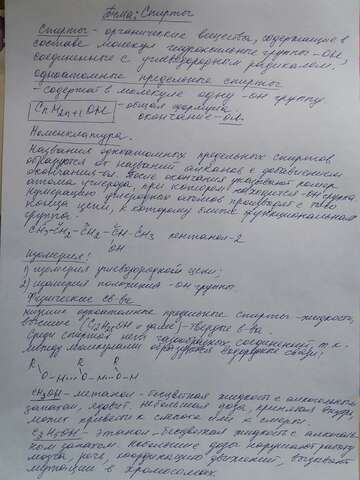 Тема: Спирты
Спирты - органические вещества, содержащие в
составе молекул гидроксильные группы -OH,
соединенные с углеводородным радикалом.
одноатомные предельные спирты
- содержат в молекуле одну -OH группу
CnH2n+1OH - общая формула
окончание -ол.
Номенклатура.
Названия одноатомных предельных спиртов
образуются от названий алканов с добавлением
окончания -ол. После окончания указывают номер
атома углерода, при котором находится -OH группа
нумерацию углеродных атомов производят с того
конца цепи, к которому ближе функциональная
группа.
CH3-CH2-CH2-CH-CH3 пентанол-2
OH
Изомерия:
1) изомерия углеводородной цепи;
2) изомерия положения -OH группы
Физические св-ва
низшие одноатомные предельные спирты - жидкости,
высшие (C12H25OH и далее) - твердые в-ва.
Среди спиртов нет газообразных соединений, т.к.
между молекулами образуются водородные связи:
R R R
O-H...O-H...O-H
CH3OH - метанол - бесцветная жидкость с алкогольным
запахом, ядовит. небольшая доза, принятая внутрь
может привести к слепоте или к смерти.
C2H5OH - этанол - бесцветная жидкость с алкоголь-
ным запахом. небольшие дозы нарушают работу
мозга, речь, координацию движений, вызывает
мутации в хромосомах.